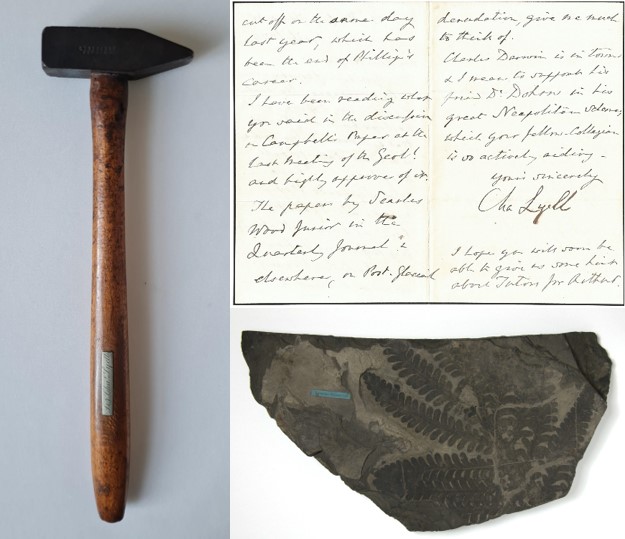 cut off on the same day
last year, which has
been the end of Phillips's
career.
I have been reading what
you said in the discussion
on Campbell's Paper at the
last meeting of the Geol!
and highly approve of it.
The papers by Searles
Wood Junior in the
Quarterly Journal &
elsewhere, on Post-glacial
denudation, give me much
to think of.
Charles Darwin is in town
& I mean to support his
friend Dr. Dohrn in his
great Neapolitan scheme,
which your fellow-Collegian
is so actively aiding.
yours sincerely
Cha Lyell
I hope you will soon be
able to give us some hint
about Tutors for Arthur.